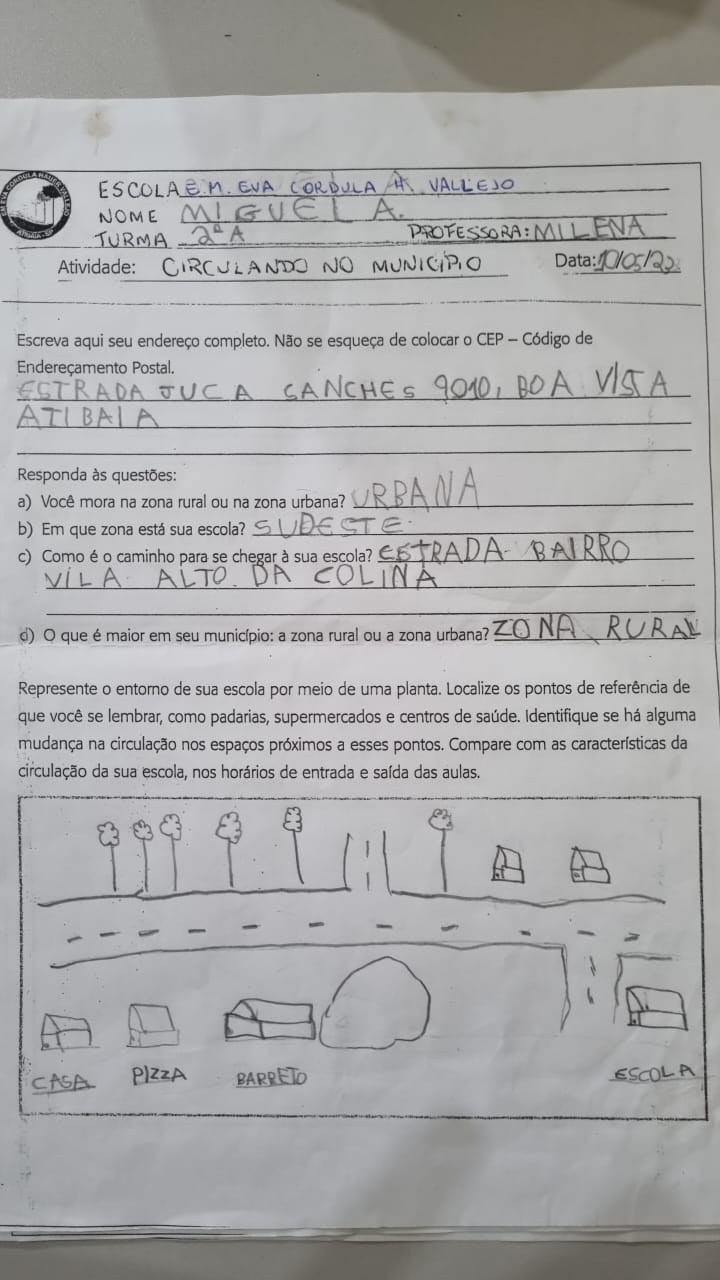 EM EVA CORDULA HAUER VALLEJO
ATIBAIA-SP
ESCOLA E.M. EVA CORDULA H. VALLEJO
NOME MIGUEL A.
TURMA 2º A PROFESSORA: MILENA
Atividade: CIRCULANDO NO MUNICÍPIO Data: 10/05/22
Escreva aqui seu endereço completo. Não se esqueça de colocar o CEP – Código de
Endereçamento Postal.
ESTRADA JUCA SANCHES 9010, BOA VISTA
ATIBAIA
Responda às questões:
a) Você mora na zona rural ou na zona urbana? URBANA
b) Em que zona está sua escola? SUDESTE.
c) Como é o caminho para se chegar à sua escola? ESTRADA BAIRRO
VILA ALTO DA COLINA
d) O que é maior em seu município: a zona rural ou a zona urbana? ZONA RURAL
Represente o entorno de sua escola por meio de uma planta. Localize os pontos de referência de
que você se lembrar, como padarias, supermercados e centros de saúde. Identifique se há alguma
mudança na circulação nos espaços próximos a esses pontos. Compare com as características da
circulação da sua escola, nos horários de entrada e saída das aulas.
CASA PIZZA BARRETO ESCOLA